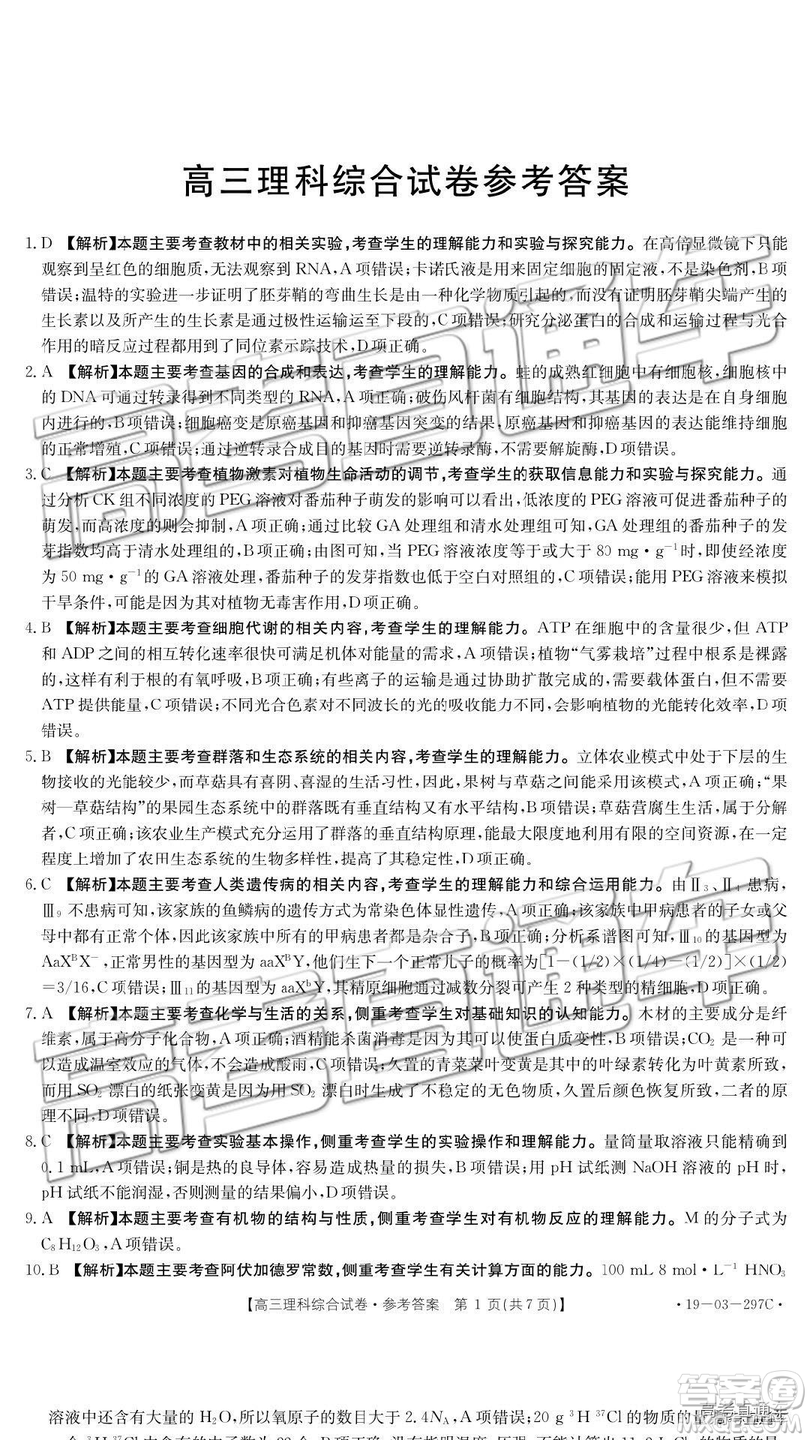 高三理科综合试卷参考答案
1. D 【解析】本题主要考查教材中的相关实验,考查学生的理解能力和实验与探究能力。在高倍显微镜下只能
观察到呈红色的细胞质,无法观察到 RNA,A 项错误;卡诺氏液是用来固定细胞的固定液,不是染色剂,B 项
错误;温特的实验进一步证明了胚芽鞘的弯曲生长是由一种化学物质引起的,而没有证明胚芽鞘尖端产生的
生长素以及所产生的生长素是通过极性运输运至下段的,C 项错误;研究分泌蛋白的合成和运输过程与光合
作用的暗反应过程都利用了同位素示踪技术,D 项正确。
2. A 【解析】本题主要考查基因的合成和表达,考查学生的理解能力。蛙的成熟红细胞中有细胞核,细胞核中
的 DNA 可通过转录得到不同类型的 RNA,A 项正确;破伤风杆菌有细胞结构,其基因的表达是在自身细胞
内进行的,B 项错误;细胞癌变是原癌基因和抑癌基因突变的结果,原癌基因和抑癌基因的表达能维持细胞
的正常增殖,C 项错误;通过逆转录合成目的基因时需要逆转录酶,不需要解旋酶,D 项错误。
3. C 【解析】本题主要考查植物激素对植物生命活动的调节,考查学生的获取信息能力和实验与探究能力。通
过分析 CK 组不同浓度的 PEG 溶液对番茄种子萌发的影响可以看出,低浓度的 PEG 溶液可促进番茄种子的
萌发,而高浓度的则会抑制,A 项正确;通过比较 GA 处理组和清水处理组可知,GA 处理组番茄种子萌发的发
芽指数均高于清水处理组,B 项正确;由图可知,当 PEG 溶液浓度等于或大于 80 mg·g⁻¹时,即使经浓度
为 50 mg·g⁻¹的 GA 溶液处理,番茄种子的发芽指数也低于空白对照组的,C 项错误;能用 PEG 溶液来模拟
干旱条件,可能是因为其对植物无毒害作用,D 项正确。
4. B 【解析】本题主要考查细胞代谢的相关内容,考查学生的理解能力。ATP 在细胞中的含量很少,但 ATP
和 ADP 之间的相互转化速率很快可满足机体对能量的需求,A 项错误;植物“气雾栽培”过程中根系是裸露
的,有利于根的有氧呼吸,B 项正确;有些离子的运输是通过协助扩散完成的,需要载体蛋白,而不需要
ATP 提供能量,C 项错误;不同光合色素对不同波长的光的吸收能力不同,叶绿素几乎不吸收绿光,D 项错
误。
5. B 【解析】本题主要考查群落和生态系统的相关内容,考查学生的理解能力。立体农业模式中处于下层的生
物接收的光能较少,而草菇具有喜阴、喜湿的生长习性,因此,果树与草菇之间能采用该模式,A 项正确;“果
树—草菇结构”的果园生态系统中的群落既有垂直结构又有水平结构,B 项错误;草菇营腐生生活,属于分解
者,C 项正确;该农业生产模式充分运用了群落的垂直结构原理,能最大限度地利用有限的空间资源,在一定
程度上增加了农田生态系统的生物多样性,提高了其稳定性,D 项正确。
6. C 【解析】本题主要考查人类遗传病的相关内容,考查学生的理解能力和综合运用能力。由Ⅱ₃、Ⅱ₄ 患病,
Ⅲ₉ 不患病可知,该家族的鱼鳞病的遗传方式为常染色体显性遗传,A 项正确;该家族中甲病患者的子女或父
母中都有正常个体,因此该家族中所有的甲病患者都是杂合子,B 项正确;分析系谱图可知,Ⅲ₁₀ 的基因型为
AaXᴮX⁻,正常男性的基因型为 aaXᴮY,他们生下一个正常儿子的概率为[1−(1/2)×(1/4)−(1/2)]×(1/2)
=3/16,C 项错误;Ⅲ₁₁的基因型为 aaXᵇY,其精原细胞通过减数分裂可产生 2 种类型的精细胞,D 项正确。
7. A 【解析】本题主要考查化学与生活的关系,侧重考查学生对基础知识的认知能力。木材的主要成分是纤
维素,属于高分子化合物,A 项正确;酒精能杀菌消毒是因为其可以使蛋白质变性,B 项错误;CO₂ 是能够造
成温室效应的气体,不会造成酸雨,C 项错误;久置的青菜菜叶变黄是因为其中的叶绿素转化为叶黄素所致,
而用 SO₂ 漂白的纸张变黄是因为 SO₂ 漂白时生成了不稳定的无色物质,久置后颜色恢复所致,二者的原
理不同,D 项错误。
8. C 【解析】本题主要考查实验基本操作,侧重考查学生的实验操作和理解能力。量筒量取溶液只能精确到
0.1 mL,A 项错误;铜是热的良导体,容易造成热量的损失,B 项错误;用 pH 试纸测 NaOH 溶液的 pH 时,
pH 试纸不能润湿,否则测量的结果偏小,D 项错误。
9. A 【解析】本题主要考查有机物的结构与性质,侧重考查学生对有机物反应的理解能力。M 的分子式为
C₈H₁₂O₃,A 项错误。
10. B 【解析】本题主要考查阿伏加德罗常数,侧重考查学生有关计算方面的能力。100 mL 8 mol·L⁻¹ HNO₃
【高三理科综合试卷·参考答案 第 1 页(共 7 页)】 ·19－03－297C·
溶液中还含有大量的 H₂O,所以氧原子的数目大于 2.4Nᴀ,A 项错误;20 g ³H ³⁷Cl 的物质的量
高考直通车
答案圈
高考直通车